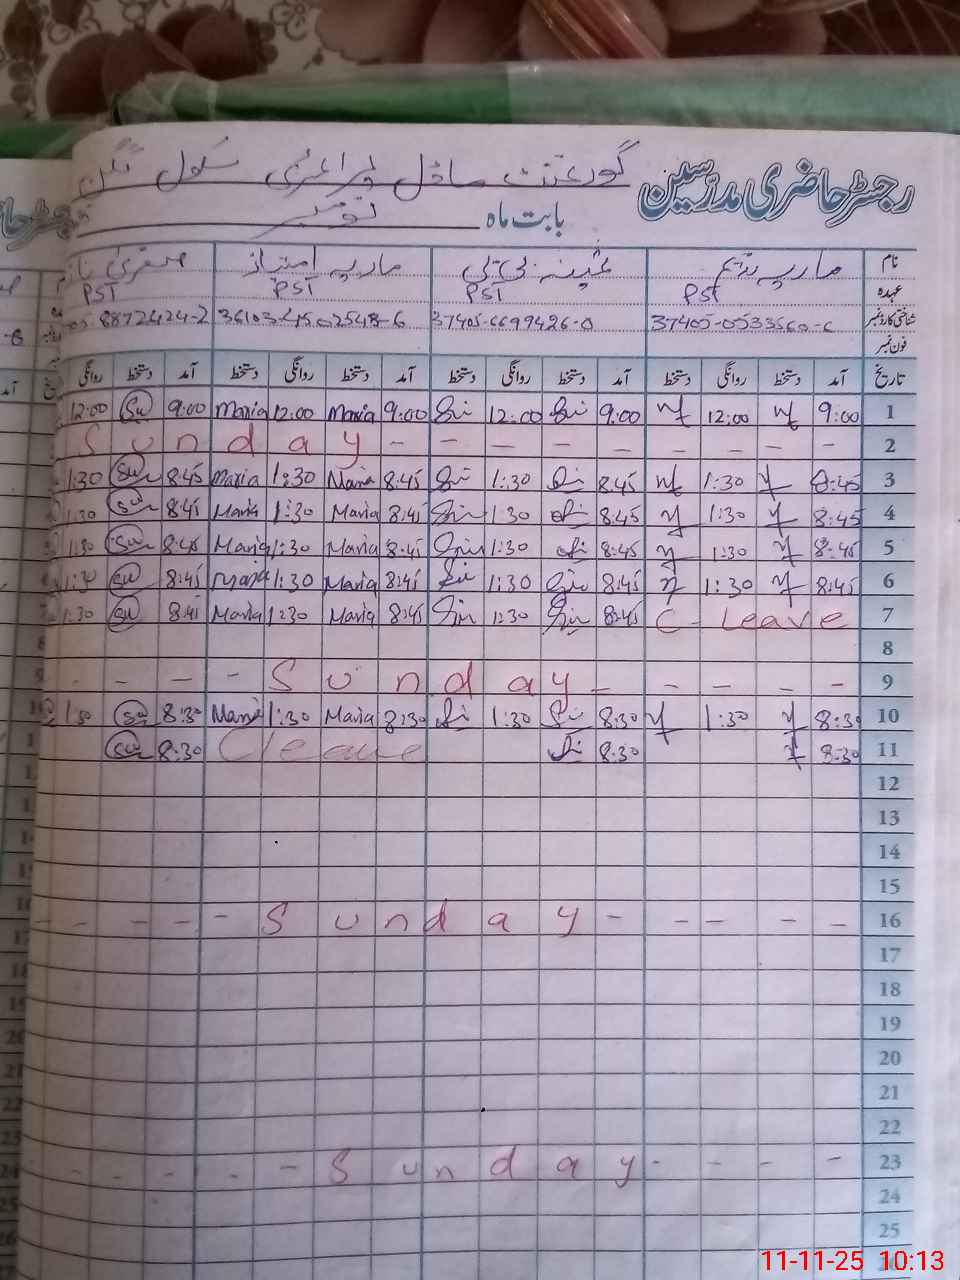 رجسٹر حاضری مدرسین گورنمنٹ ماڈل پرائمری سکول
بابت ماہ نومبر
نام ماریہ ثمینہ بی بی ماریہ امتیاز صغریٰ
عہدہ PST PST PST PST
شناختی کارڈ نمبر 37405-6699426-0 8872424-2
فون نمبر
تاریخ آمد دستخط روانگی دستخط آمد دستخط روانگی دستخط آمد دستخط روانگی دستخط آمد دستخط روانگی
1 9:00 12:00 9:00 12:00 9:00 Maria 12:00 Maria 9:00 Su 12:00
2 Sunday
3 8:45 1:30 8:45 1:30 8:45 Maria 1:30 Maria 8:45 Su 1:30
4 8:45 1:30 8:45 1:30 8:45 Maria 1:30 Maria 8:45 Su 1:30
5 8:45 1:30 8:45 1:30 8:45 Maria 1:30 Maria 8:45 Su 1:30
6 8:45 1:30 8:45 1:30 8:45 Maria 1:30 Maria 8:45 Su
7 C-Leave 8:45 1:30 8:45 Maria 1:30 Maria 8:45 Su 1:30
8
9 Sunday
10 8:30 1:30 8:30 1:30 8:30 Maria 1:30 Maria 8:30 Su 1:30
11 8:30 8:30 C leave 8:30 Su
12
13
14
15
16 Sunday
17
18
19
20
21
22
23 Sunday
24
25
11-11-25 10:13